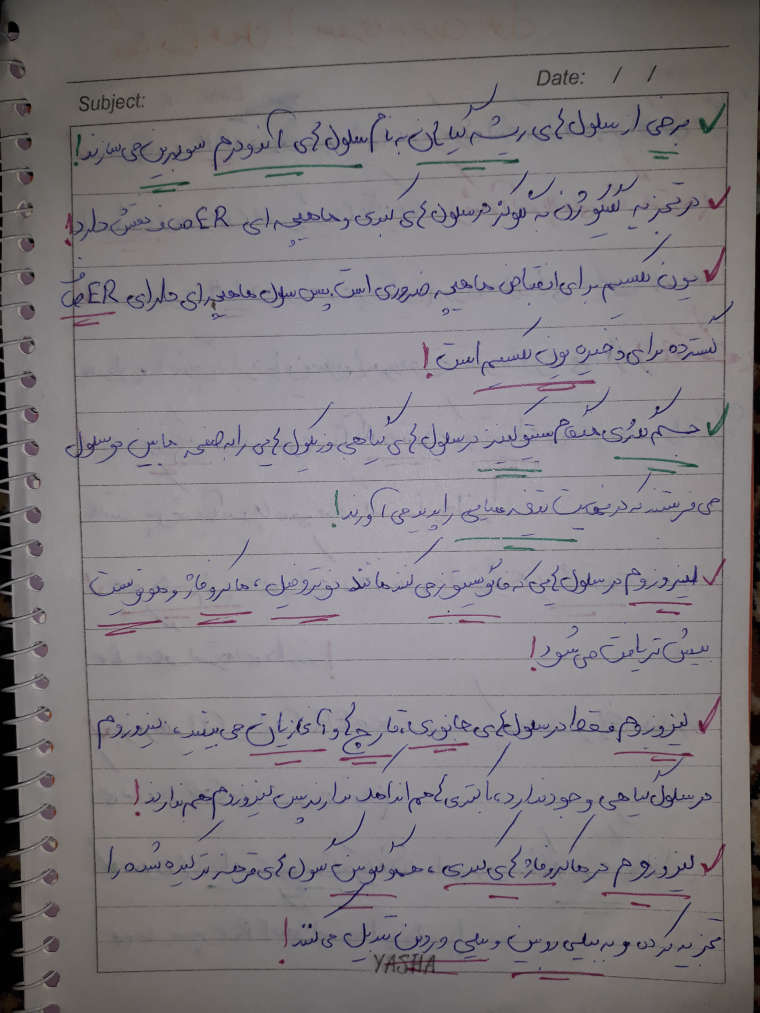 Date: / /
Subject:
✓ برخی از سلول های ریشه گیاهان به نام سلول های آندودرم سوبرین می سازند!
✓ در تجزیه گلیکوژن به گلوکز در سلول های کبدی و ماهیچه ای ER صاف نقش دارد!
✓ یون کلسیم برای انقباض ماهیچه ضروری است. پس سلول ماهیچه ای دارای ER صاف
گسترده برای ذخیره یون کلسیم است!
✓ جسم گلژی هنگام سیتوکینز در سلول های گیاهی وزیکول هایی را به صفحه مابین دو سلول
می فرستند که در نهایت تیغه میانی را پدید می آورند!
✓ لیزوزوم در سلول هایی که فاگوسیتوز می کنند مانند نوتروفیل، ماکروفاژ و مونوسیت
بیش تر یافت می شود!
✓ لیزوزوم فقط در سلول های جانوری، قارچ ها و آغازیان می بینید، لیزوزوم
در سلول گیاهی وجود ندارد، باکتری ها هم اندامک ندارند پس لیزوزوم هم ندارند!
✓ لیزوزوم در ماکروفاژ های کبدی، هموگلوبین گلبول های قرمز ترکیده شده را
تجزیه کرده و به بیلی روبین و بیلی وردین تبدیل می کنند!
YASHA